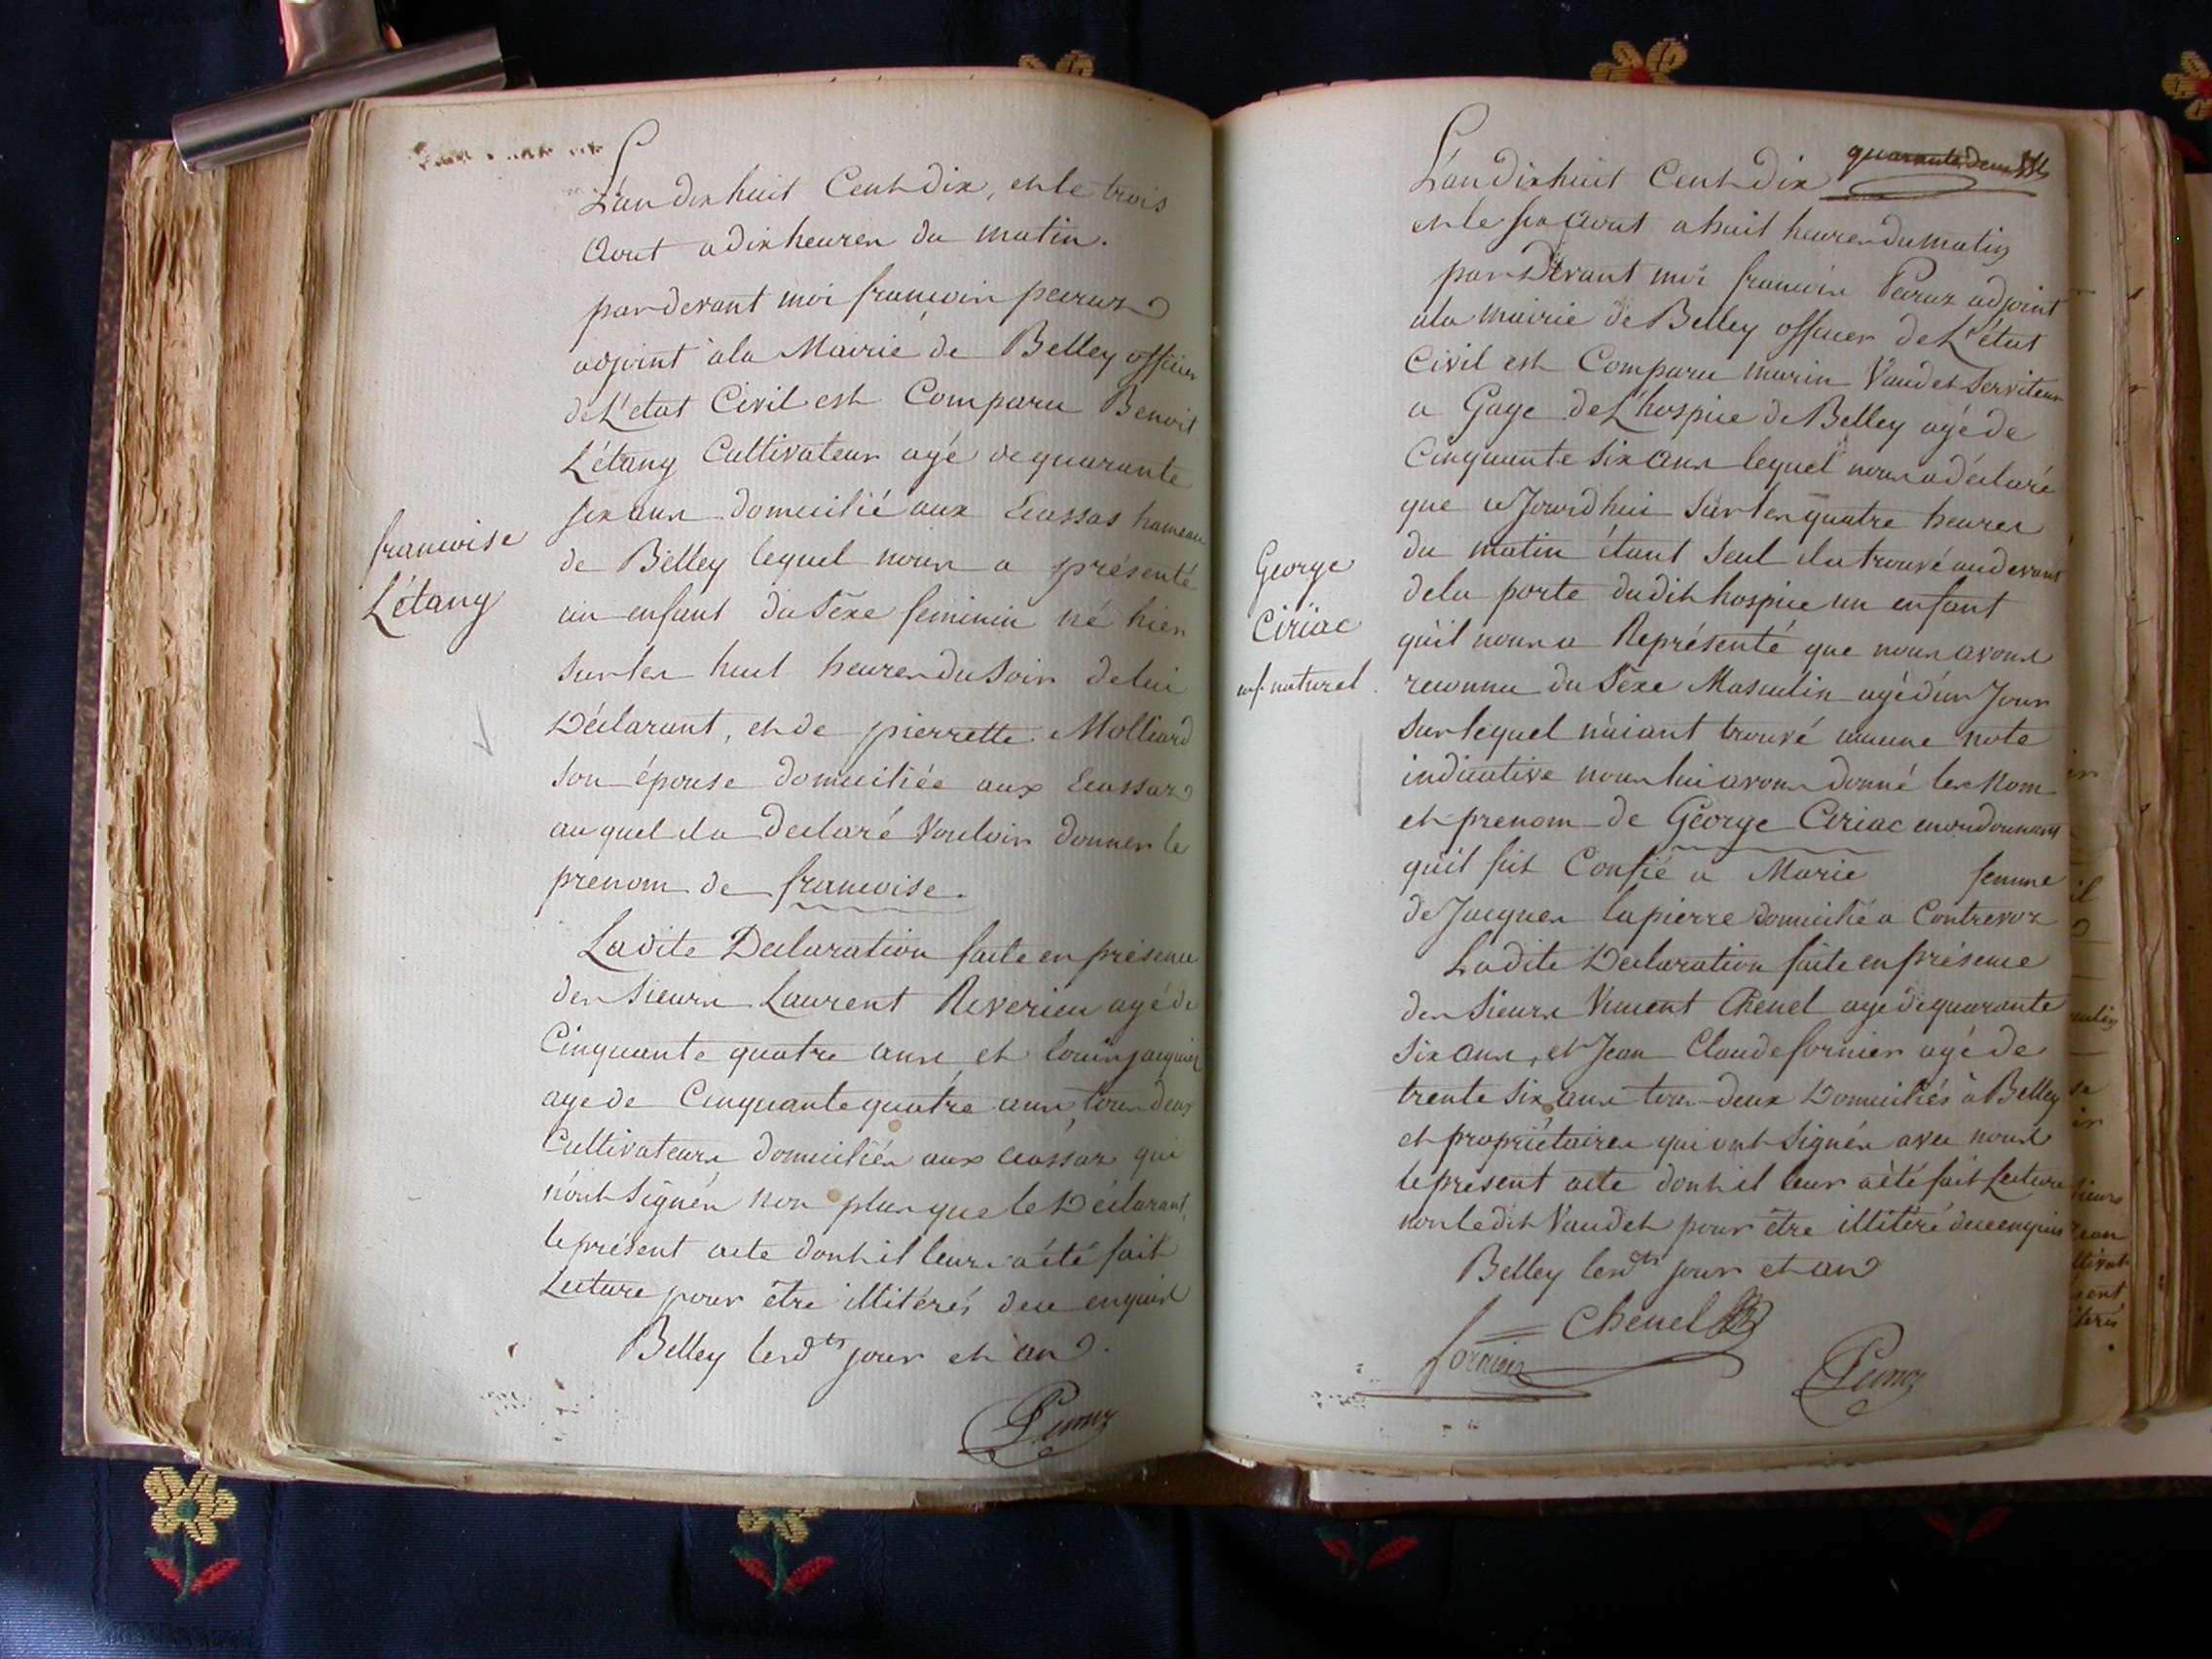 L'an dix huit Cent dix, et le trois
Aout a dix heures du matin.
pardevant moi francois peiraz
adjoint à la Mairie de Belley officier
de L'etat Civil est Comparu Benoit
L'étang Cultivateur agé de quarante
six ans domicilié aux Ecassas hameau
de Belley lequel nous a présenté
un enfant du Sexe feminin né hier
sur les huit heures du Soir de lui
Déclarant, et de pierrette Molliard
son épouse domiciliée aux Ecassaz
au quel il a declaré Vouloir donner le
prenom de francoise.
francoise
L'étang
Ladite Declaration faite en présence
des Sieurs Laurent Reverieu agé de
Cinquante quatre ans et Louis jacquier
age de Cinquante quatre ans tous deux
Cultivateurs domiciliés aux ecassaz qui
n'ont Signés non plus que le Déclarant,
le présent acte dont il leur a été fait
Lecture pour être illitérés de ce enquis
Belley lesd.ts jour et an.
Peiraz
quarante deux
L'an dix huit Cent dix
et le six Aout a huit heures du matin
par Devant moi francois Peiraz adjoint
a la mairie de Belley officier de L'état
Civil est Comparu marin Vaudet Serviteur
a Gage de L'hospice de Belley agé de
Cinquante six ans lequel nous a déclaré
que ce Jourd'hui Sur les quatre heures
du matin étant Seul il a trouvé au devant
de la porte dudit hospice un enfant
qu'il nous a Représenté que nous avons
reconnu du Sexe Masculin agé d'un Jour
Sur lequel n'aiant trouvé aucune note
indicative nous lui avons donné les Nom
et prenom de George Ciriac en ordonnant
qu'il fut Confié a Marie femme
de Jacques Lapierre domicilié a Contrevoz
George
Ciriac
enf. naturel.
Ladite Declaration faite en présence
des Sieurs Vincent Chenel agé de quarante
Six ans, et Jean Claude fornier agé de
trente Six ans tous deux Domiciliés à Belley
et propriétaires qui ont Signés avec nous
le présent acte dont il leur a été fait Lecture
non ledit Vaudet pour être illitéré de ce enquis
Belley lesd.ts jour et an
Chenel
fornier
Peiraz